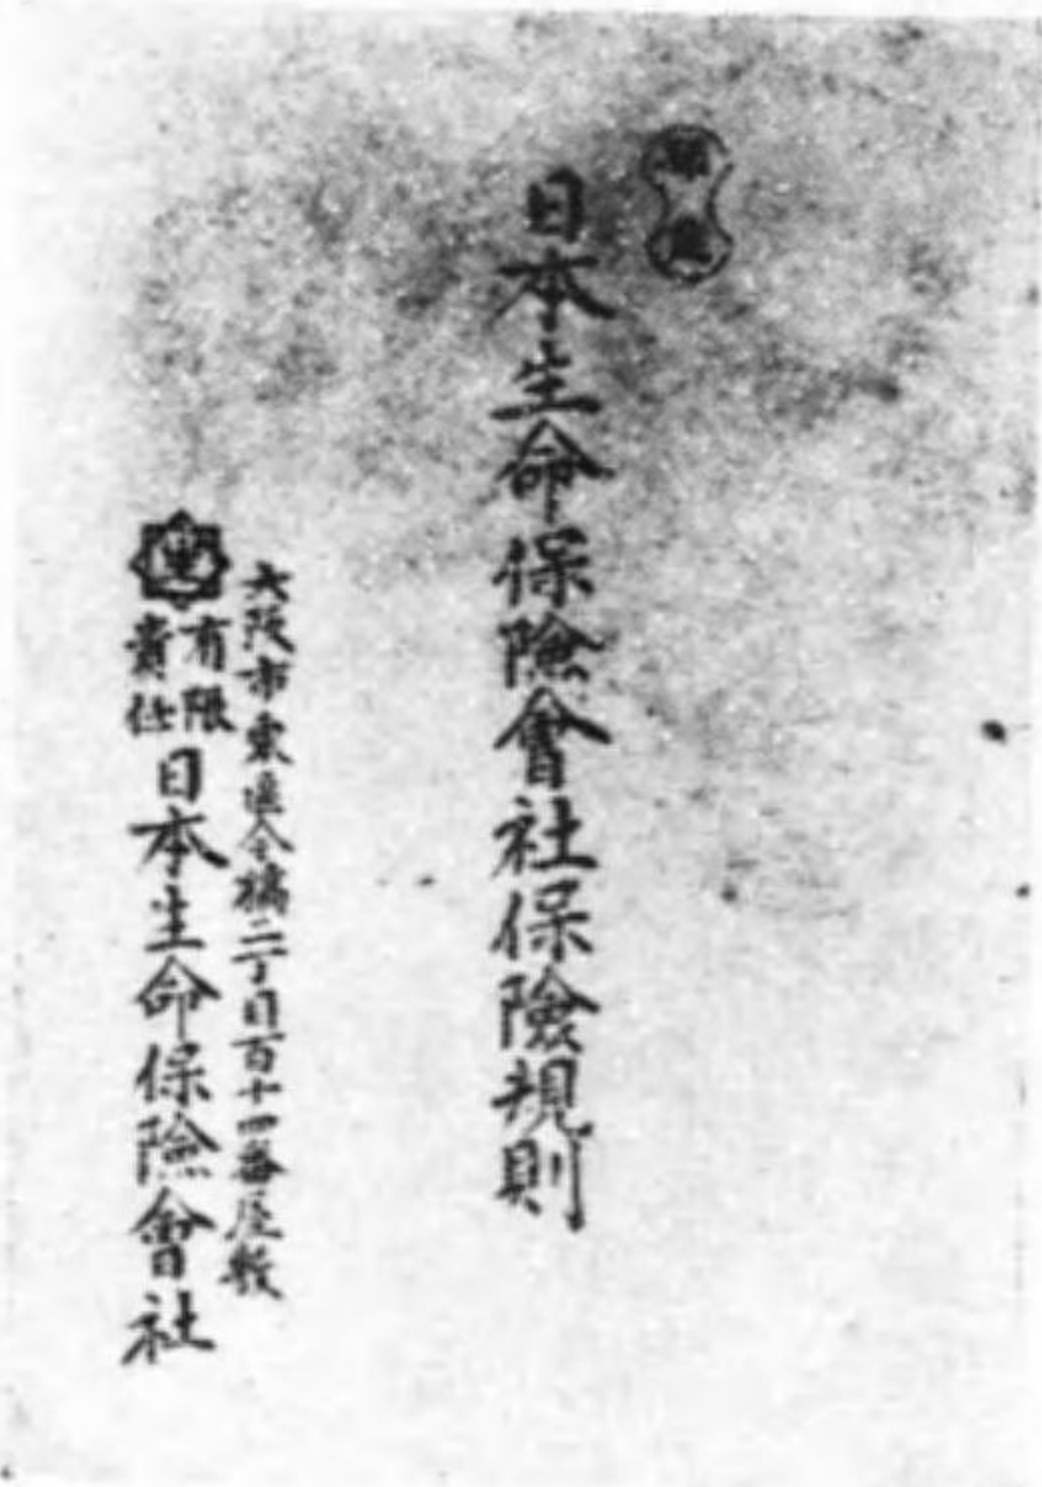 日本生命保險會社保險規則
大阪市東區今橋二丁目百十四番屋敷
有限責任日本生命保險會社